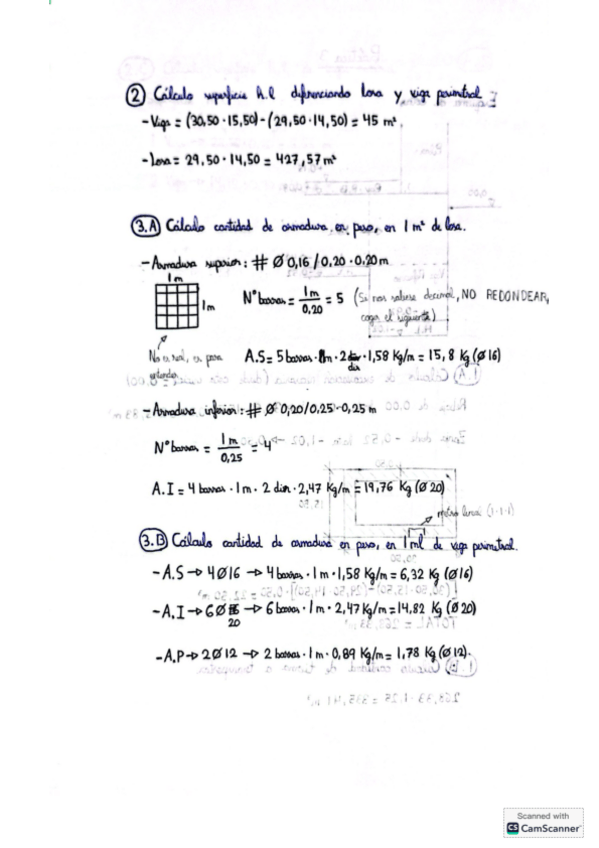 ② Cálculo superficie h.l diferenciando losa y viga perimetral
- Viga = (30,50 · 15,50) - (29,50 · 14,50) = 45 m².
- Losa = 29,50 · 14,50 = 427,57 m²
3.A) Cálculo cantidad de armadura, en peso, en 1 m² de losa.
- Armadura superior: # Ø 0,16 / 0,20 · 0,20 m
1m
1m
Nº barras = 1m / 0,20 = 5 (Si nos saliese decimal, NO REDONDEAR, coger el siguiente)
No es real, es para entender
A.S = 5 barras · 1m · 2 dir · 1,58 Kg/m = 15,8 Kg (Ø 16)
- Armadura inferior: # Ø 0,20 / 0,25 · 0,25 m
Nº barras = 1m / 0,25 = 4
A.I = 4 barras · 1m · 2 dir · 2,47 Kg/m = 19,76 Kg (Ø 20)
metro lineal (1·1·1)
3.B) Cálculo cantidad de armadura en peso, en 1 ml de viga perimetral.
- A.S → 4Ø16 → 4 barras · 1m · 1,58 Kg/m = 6,32 Kg (Ø16)
- A.I → 6Ø 20 → 6 barras · 1m · 2,47 Kg/m = 14,82 Kg (Ø 20)
- A.P → 2Ø12 → 2 barras · 1m · 0,89 Kg/m = 1,78 Kg (Ø 12).
Scanned with
CS CamScanner